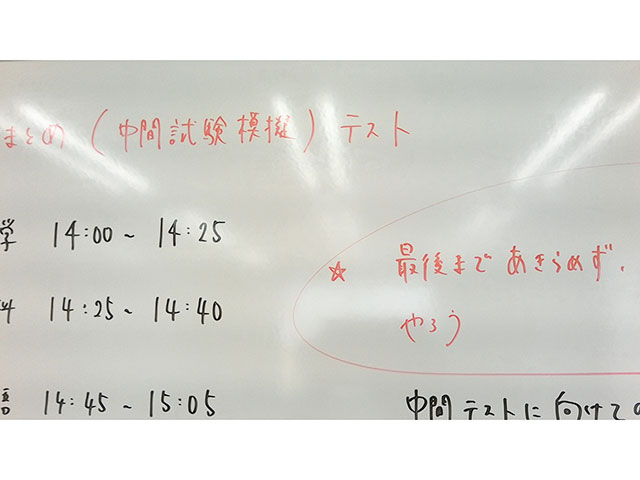 まとめ (中間試験模擬) テスト
学 14:00～ 14:25
14:25～ 14:40
14:45 ～15:05
☆ 最後まであきらめず、
やろう
中間テストに向けての